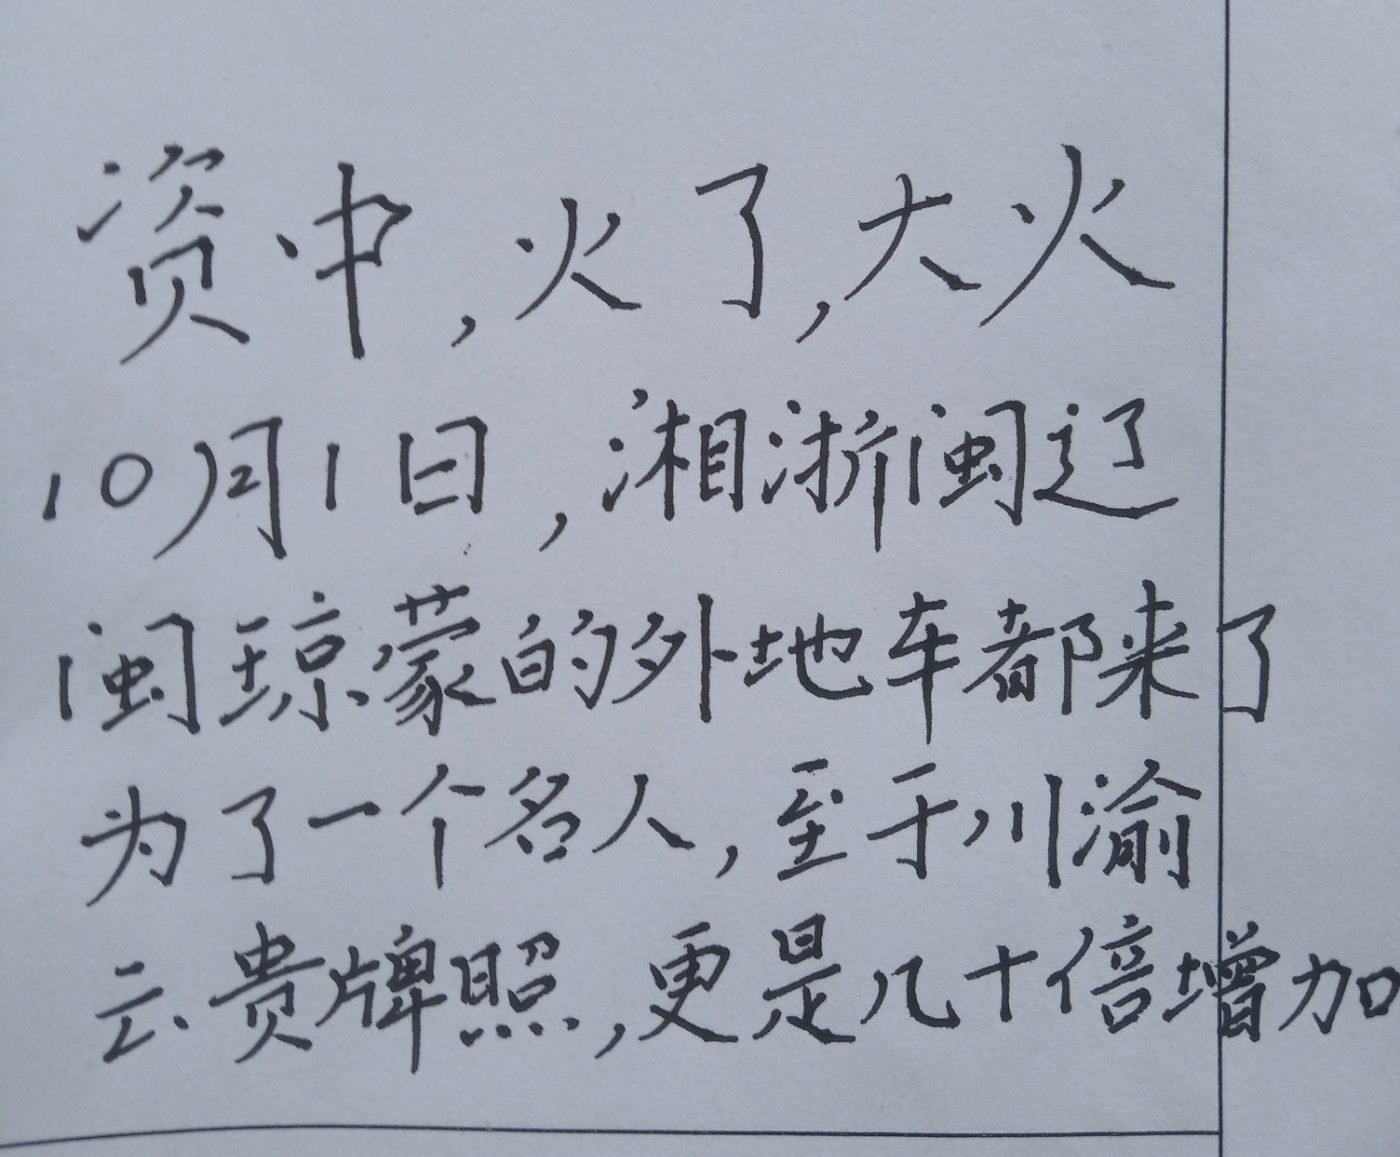 资中,火了,大火
10月1日,湘浙闽辽
闽琼蒙的外地车都来了
为了一个名人,至于川渝
云贵牌照,更是几十倍增加